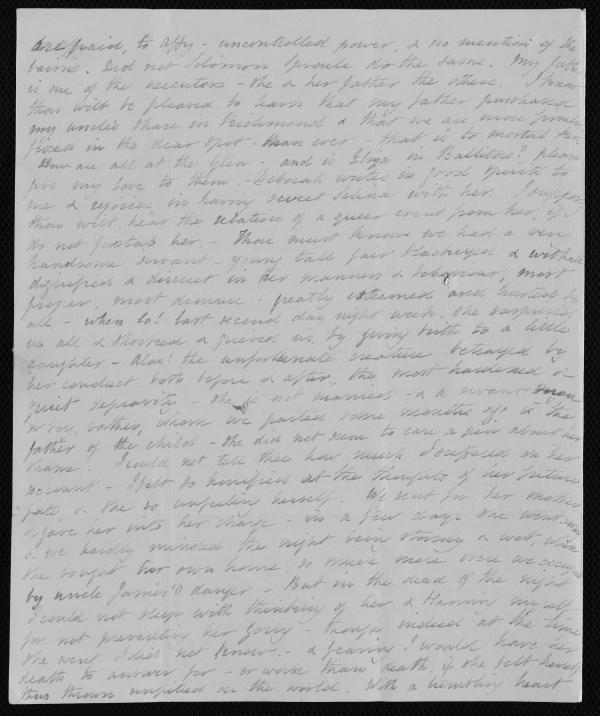 are paid, to Affy - uncontrolled power, & no mention of the
bairns. Did not Solomon Sproule do the same. My father
is one of the executors - she & her father the others. I know
thou wilt be pleased to learn that my father purchased
my uncle's share in Richmond & that we are more firmly
fixed in the dear spot than ever - that is to mortal
How are all at the Glen - and is Eliza in Ballitore? please
give my love to them. - Deborah writes in good spirits to
me & rejoices in having sweet Selina with her. I suppose
thou wilt hear the relation of a queer event from her, if I
do not forstal her. - Thou must know we had a very
handsome servant - young tall fair blackeyed & withal
dignified & discreet in her manners & behaviour, most
proper, most demure - greatly esteemed and trusted by
all - when lo! last second day night week, she surprised
us all & shocked & grieved us by giving birth to a little
daughter - Alas! the unfortunate creature betrayed by
her conduct both before & after, the most hardened &
quiet depravity - she is not married - & a servant man
or boy, rather, whom we parted some months ago is the
father of the child - she did not seem to care a pin about her
shame. I could not tell thee how much I suffered on her
account - I felt so horrified at the thoughts of her future
fate, & she so unfeeling herself. We sent for her mother
& gave her into her charge - in a few days she went away
& we hardly minded the night being stormy & wet when
she sought her own home, so much more were we occupied
by uncle James's danger - But in the dead of the night
I could not sleep with thinking of her & blaming myself
for not preventing her going - though indeed at the time
she went I did not know - & fearing I would have her
death to answer for - or worse than death, if she felt herself
thus thrown unpitied on the world. With a trembling heart